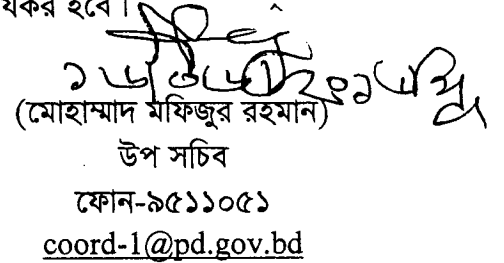 যকর হবে।
(মোহাম্মাদ মফিজুর রহমান)
উপ সচিব
ফোন-৯৫১১০৫১
coord-1@pd.gov.bd